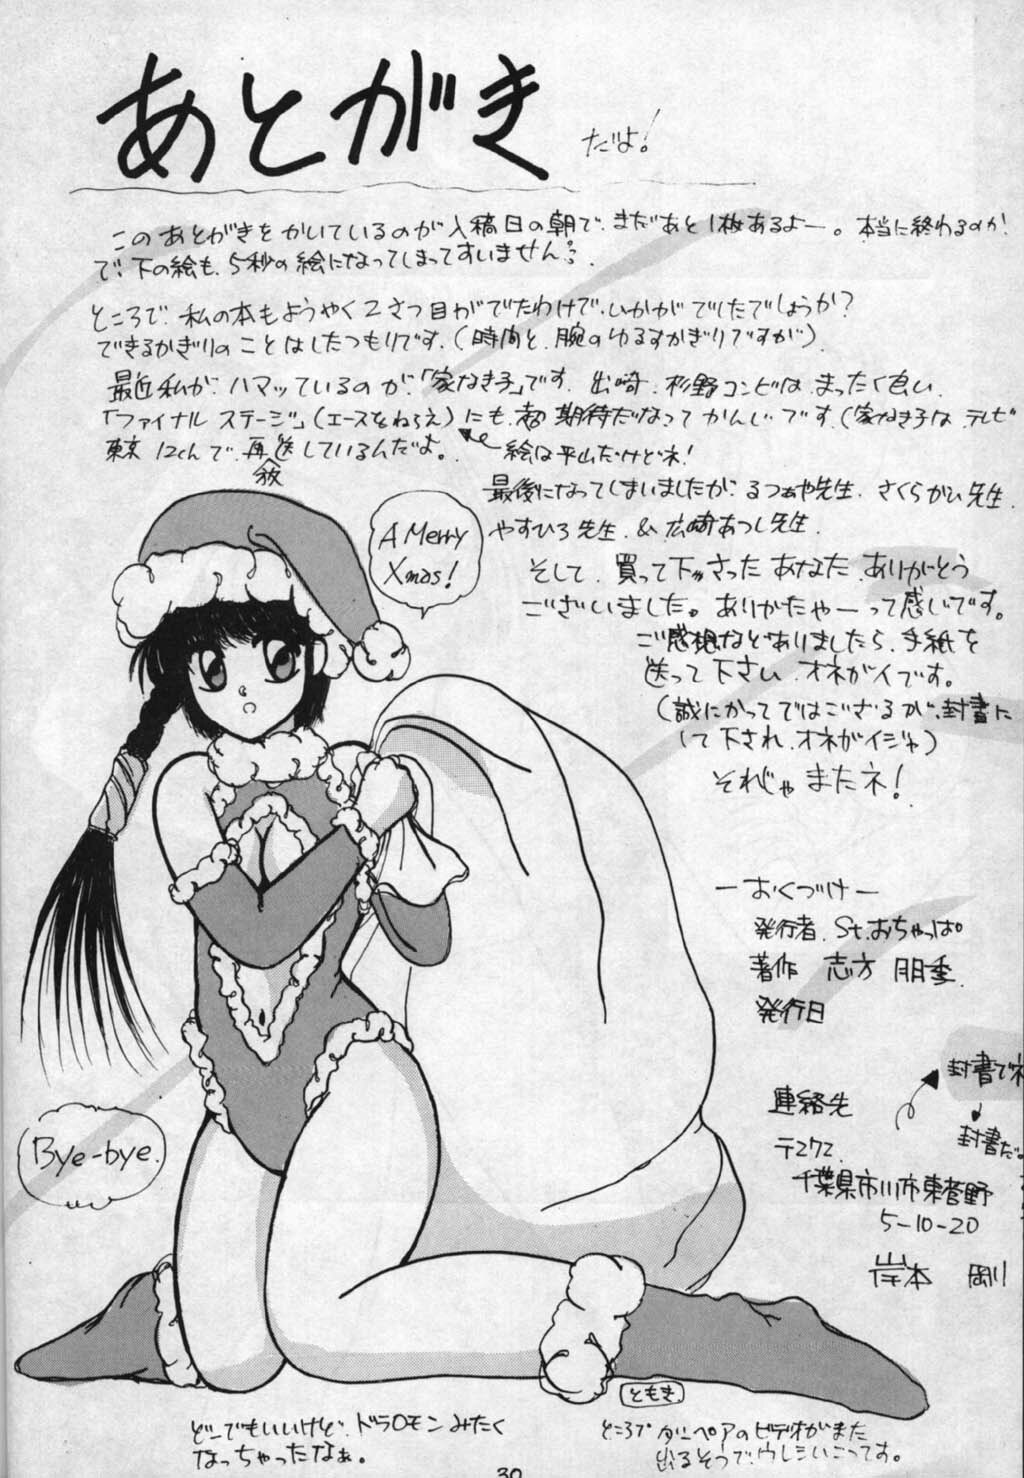 あとがき だよ!
このあとがきをかいているのが入稿日の朝で、まだあと1枚あるよー。本当に終わるのか
で、下の絵も、5秒の絵になってしまってすいません。
ところで、私の本もようやく2さつ目がでたわけで、いかがでしたでしょうか?
できるかぎりのことはしたつもりです。(時間と、腕のゆるすかぎりですが)
最近私が、ハマッているのが、「家なき子」です。出崎、杉野コンビは、まったく良い、
「ファイナルステージ」(エースをねらえ)にも、超期待だなってかんじです。(家なき子は、テレビ
東京12chで、再放送しているんだよ。
絵は平山だけどネ!
最後になってしまいましたが、るつぁや先生、さくらかひ先生、
やすひろ先生、&広崎あつし先生、
そして、買って下さったあなた、ありがとう
ございました。ありがたやーって感じです。
ご感想などありましたら、手紙を
送って下さい、オネガイです。
(誠にかってではござるが、封書に
して下され、オネガイジャ)
それじゃまたネ!
A Merry
Xmas!
ーおくづけー
発行者、St.おちゃっぱ
著作 志方 朋季
発行日
封書でネ
封書だ
連絡先
〒272
千葉県市川市東菅野
5-10-20
岸本 剛
Bye-bye.
ともき
どーでもいいけど、ドラ〇モンみたく
なっちゃったなぁ。
ところで ダーペアのビデオがまた
出るそうで、ウレシいこってす。
30